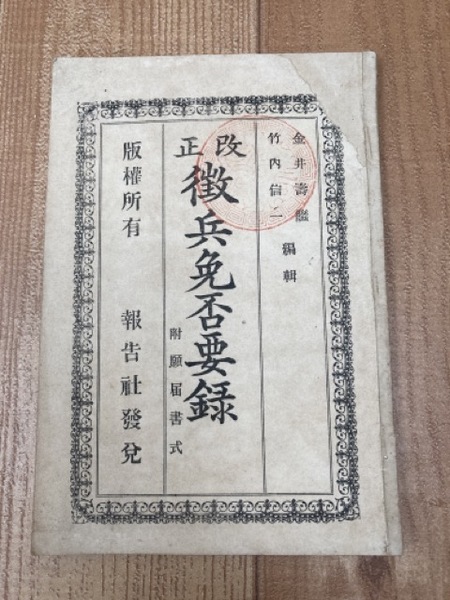 金井壽
竹内信一
編輯
改正
徴兵免否要録
附願届書式
版權所有
報告社發兌